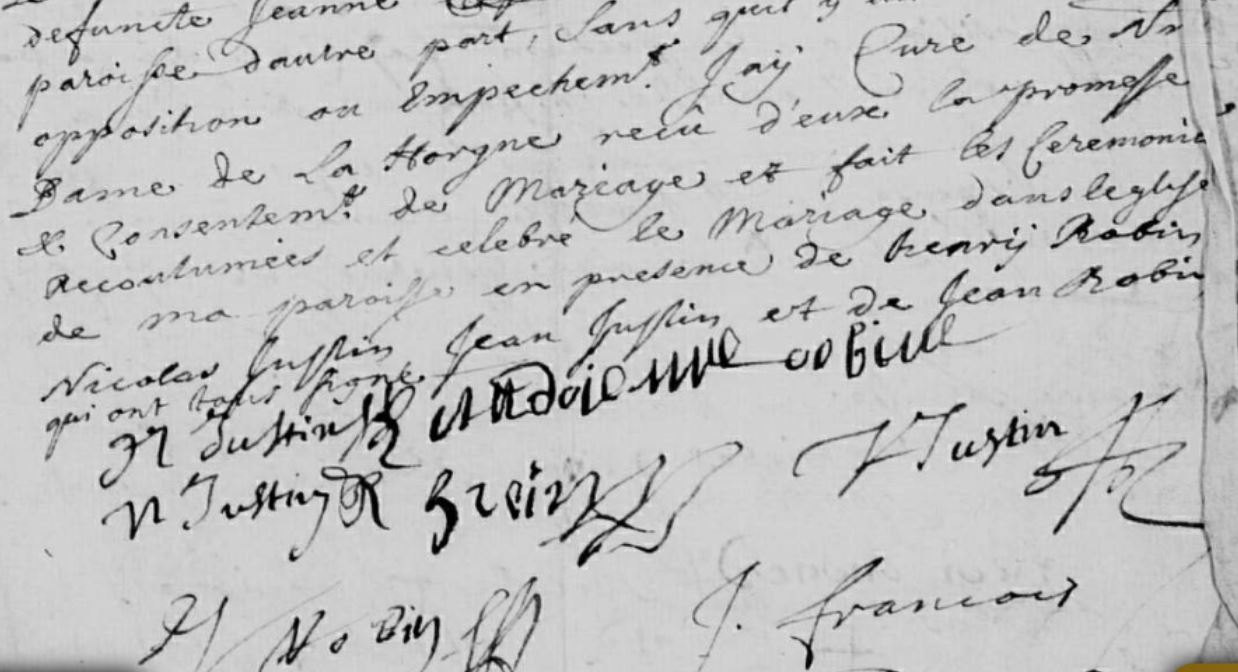 defuncte Jeanne
paroisse dautre part, sans quil y
opposition ou Empechemt. Jaÿ Curé de Nr
Dame de La Horgne recu d'eux la promesse
& Consentemt. de Mariage et fait les Ceremonie
Accoutumées et celebré le Mariage dans leglise
de ma paroisse en presence de henrÿ Robin
Nicolas Justin Jean Justin et de Jean Robin
qui ont tous signé
Justin
N Justin
N Justin
Robin
J. francois